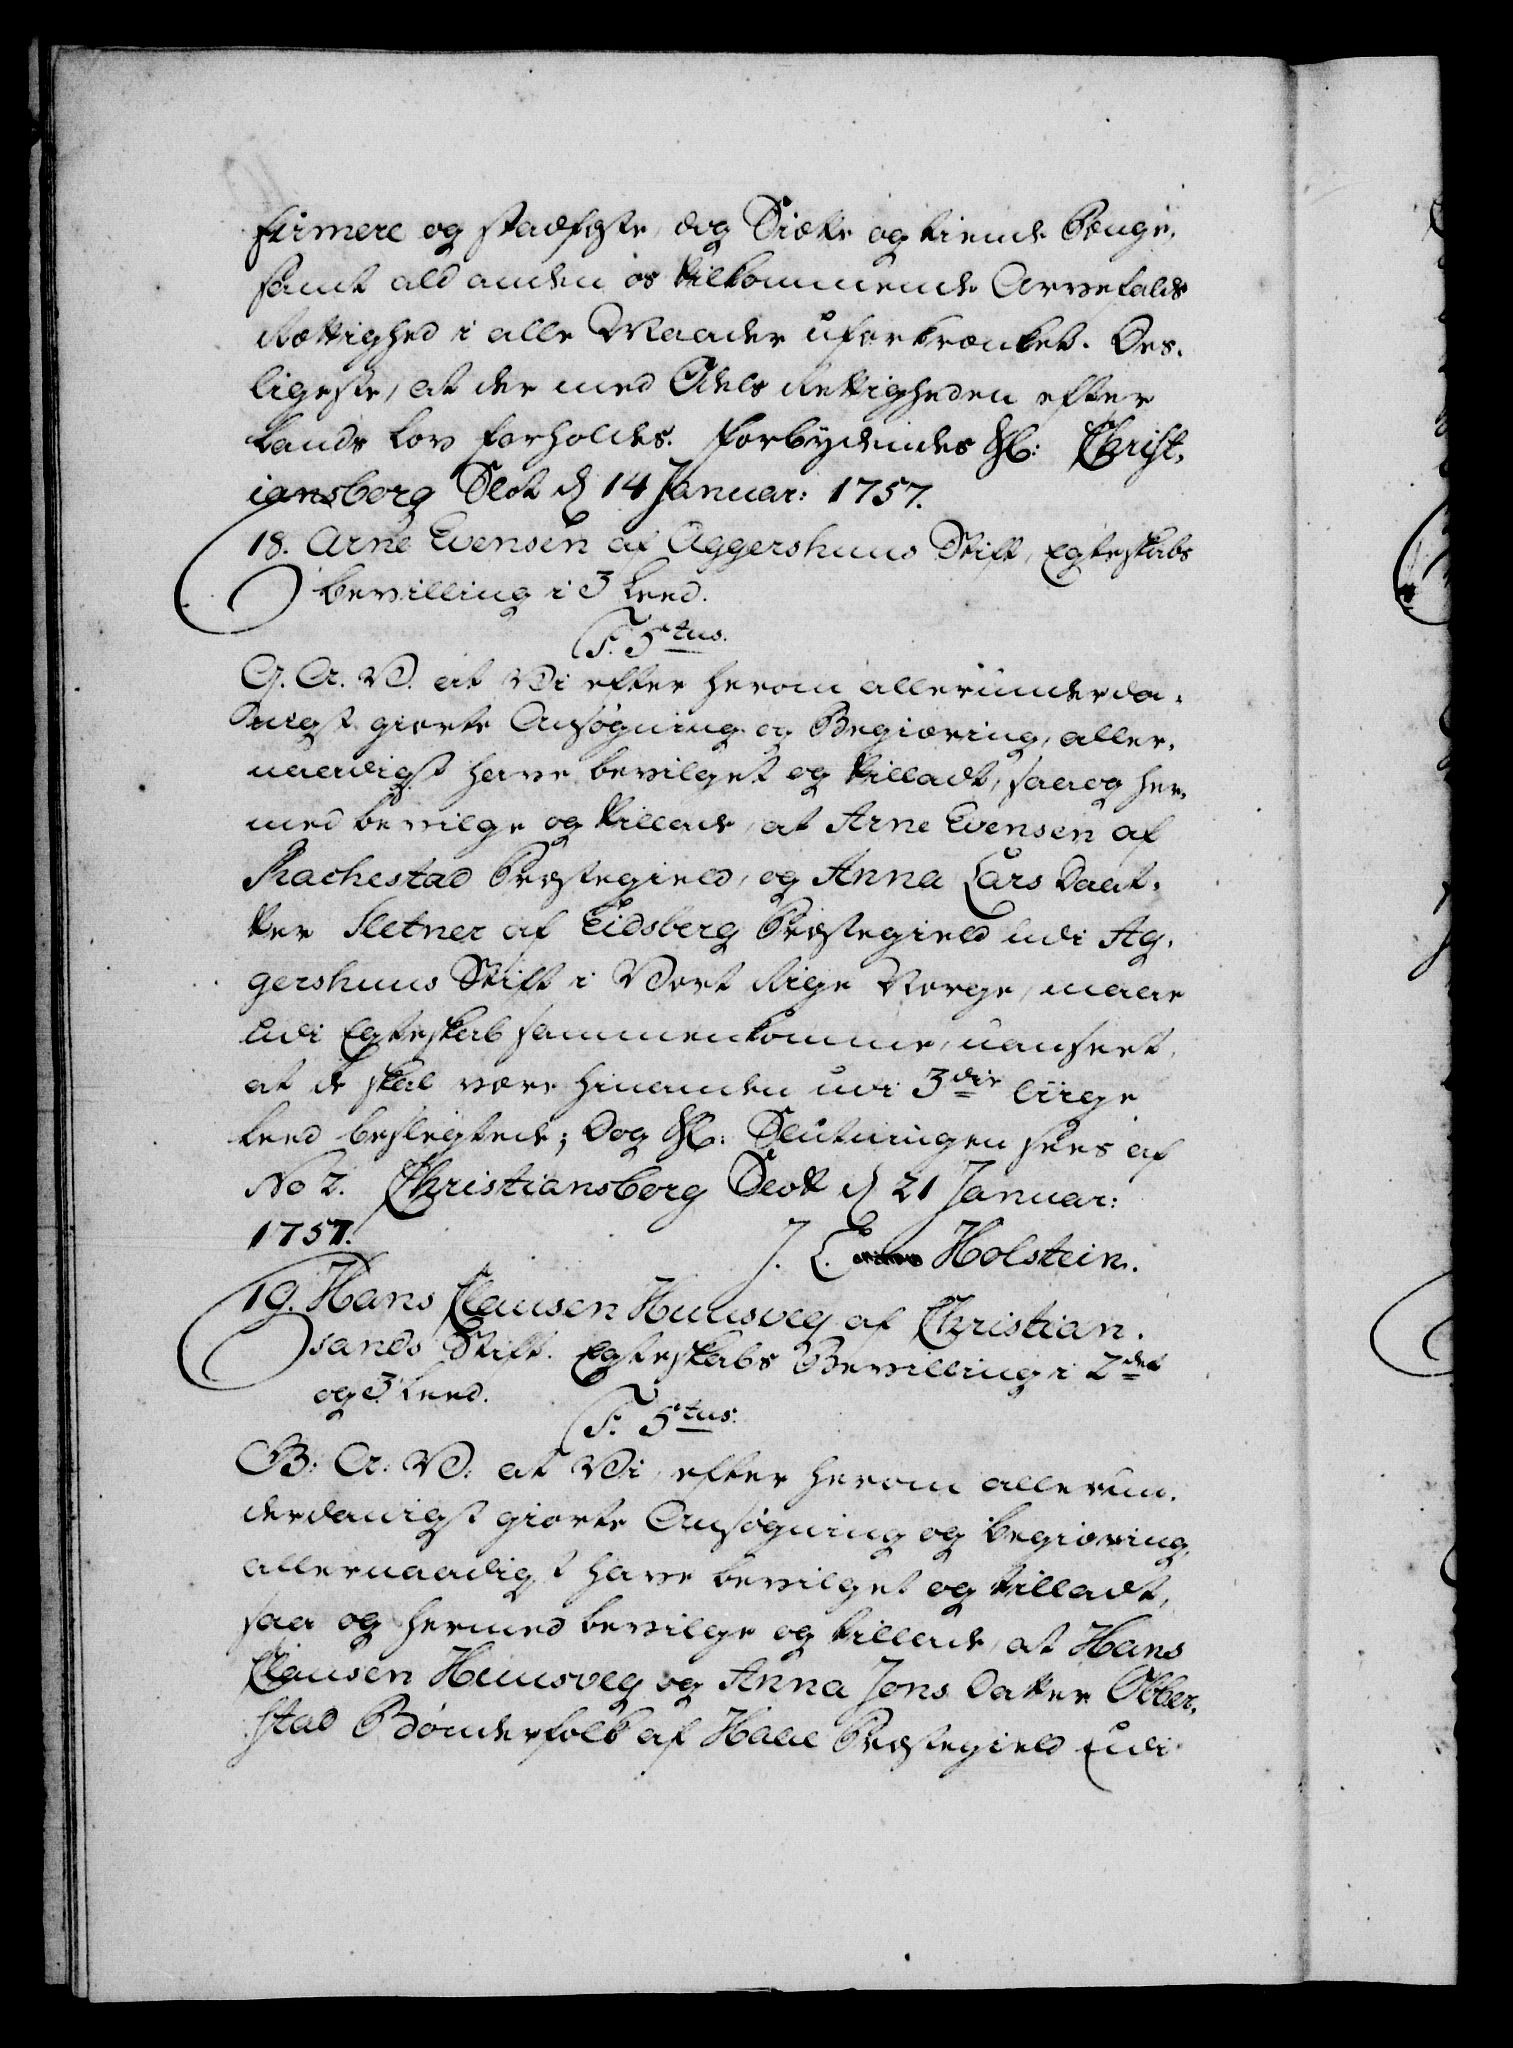 firmere og stadfæste, dog Siette og tiende Penge,
samt ald anden os tilkommende Arvefalds
Rættighed i alle Maader uforkrænket. Des-
ligeste, at der med Odels Rettigheden efter
Lands Lov forholdes. Forbydendes &c: Christ-
iansborg Slot d 14 Januar: 1757.
18. Arne Evensen af Aggershuus Stift, Egteskabs
bevilling i 3 Leed.
F. 5tus.
G. A. V. at Vi efter herom allerunderda-
nigst giorte Ansøgning og Begiæring, aller-
naadigst have bevilget og tilladt, saa og her-
med bevilge og tillade, at Arne Evensen af
Rachestad Præstegield, og Anna Lars Daat-
ter Sletner af Eidsberg Præstegield udi Ag-
gershuus Stift i Vort Rige Norge, maae
udi Egteskab sammenkomme, uanseet,
at de skal være hinanden udi 3die liige
Leed beslegtede; Dog &c: Slutningen sees af
No 2. Christiansborg Slot d 21 Januar:
1757.
J. L. Holstein.
19. Hans Clausen Huusveg af Christian-
sands Stift. Egteskabs Bevilling i 2det
og 3 Leed.
F. 5tus.
G: A: V: at Vi, efter herom allerun-
derdanigst giorte Ansøgning og begiæring,
allernaadigst have bevilget og tilladt,
saa og hermed bevilge og tillade, at Hans
Clausen Huusveg og Anna Jons Datter Obber-
stad Bønderfolk af Haae Præstegield udi